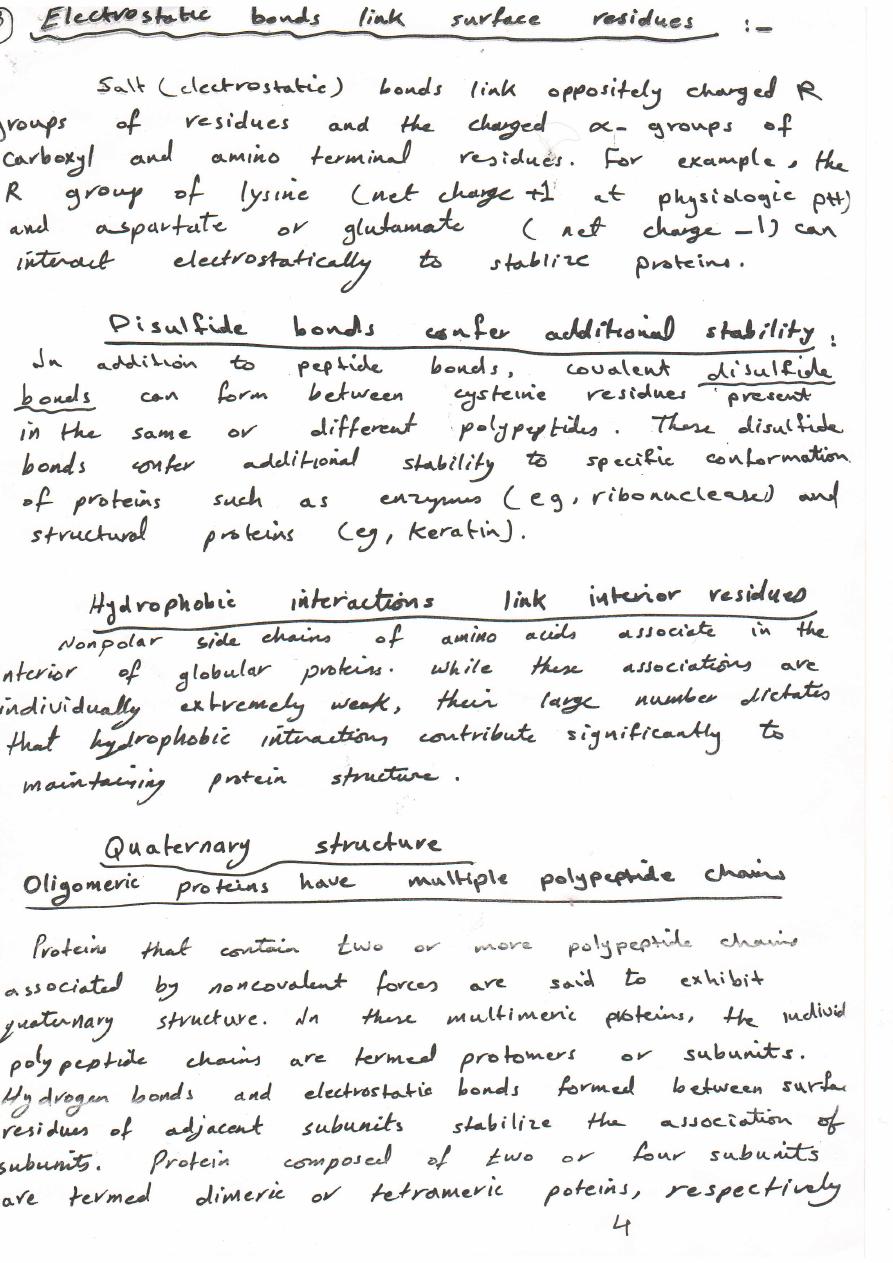 Electrostatic bonds link surface residues :-
Salt (electrostatic) bonds link oppositely charged R
groups of residues and the charged α- groups of
carboxyl and amino terminal residues. For example, the
R group of lysine (net charge +1 at physiologic pH)
and aspartate or glutamate (net charge -1) can
interact electrostatically to stablize proteins.
Disulfide bonds confer additional stability :
In addition to peptide bonds, covalent disulfide
bonds can form between cysteine residues present
in the same or different polypeptides. These disulfide
bonds confer additional stability to specific conformation
of proteins such as enzymes (eg, ribonuclease) and
structural proteins (eg, keratin).
Hydrophobic interactions link interior residues
Nonpolar side chains of amino acids associate in the
nterior of globular proteins. While these associations are
individually extremely weak, their large number dictates
that hydrophobic interactions contribute significantly to
maintaining protein structure.
Quaternary structure
Oligomeric proteins have multiple polypeptide chains
Proteins that contain two or more polypeptide chains
associated by noncovalent forces are said to exhibit
quaternary structure. In these multimeric proteins, the individ
polypeptide chains are termed protomers or subunits.
Hydrogen bonds and electrostatic bonds formed between surfac
residues of adjacent subunits stabilize the association of
subunits. Protein composed of two or four subunits
are termed dimeric or tetrameric poteins, respectively
4